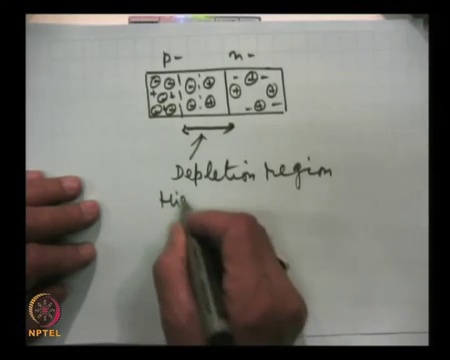 p- n-
Depletion region
Hi
NPTEL